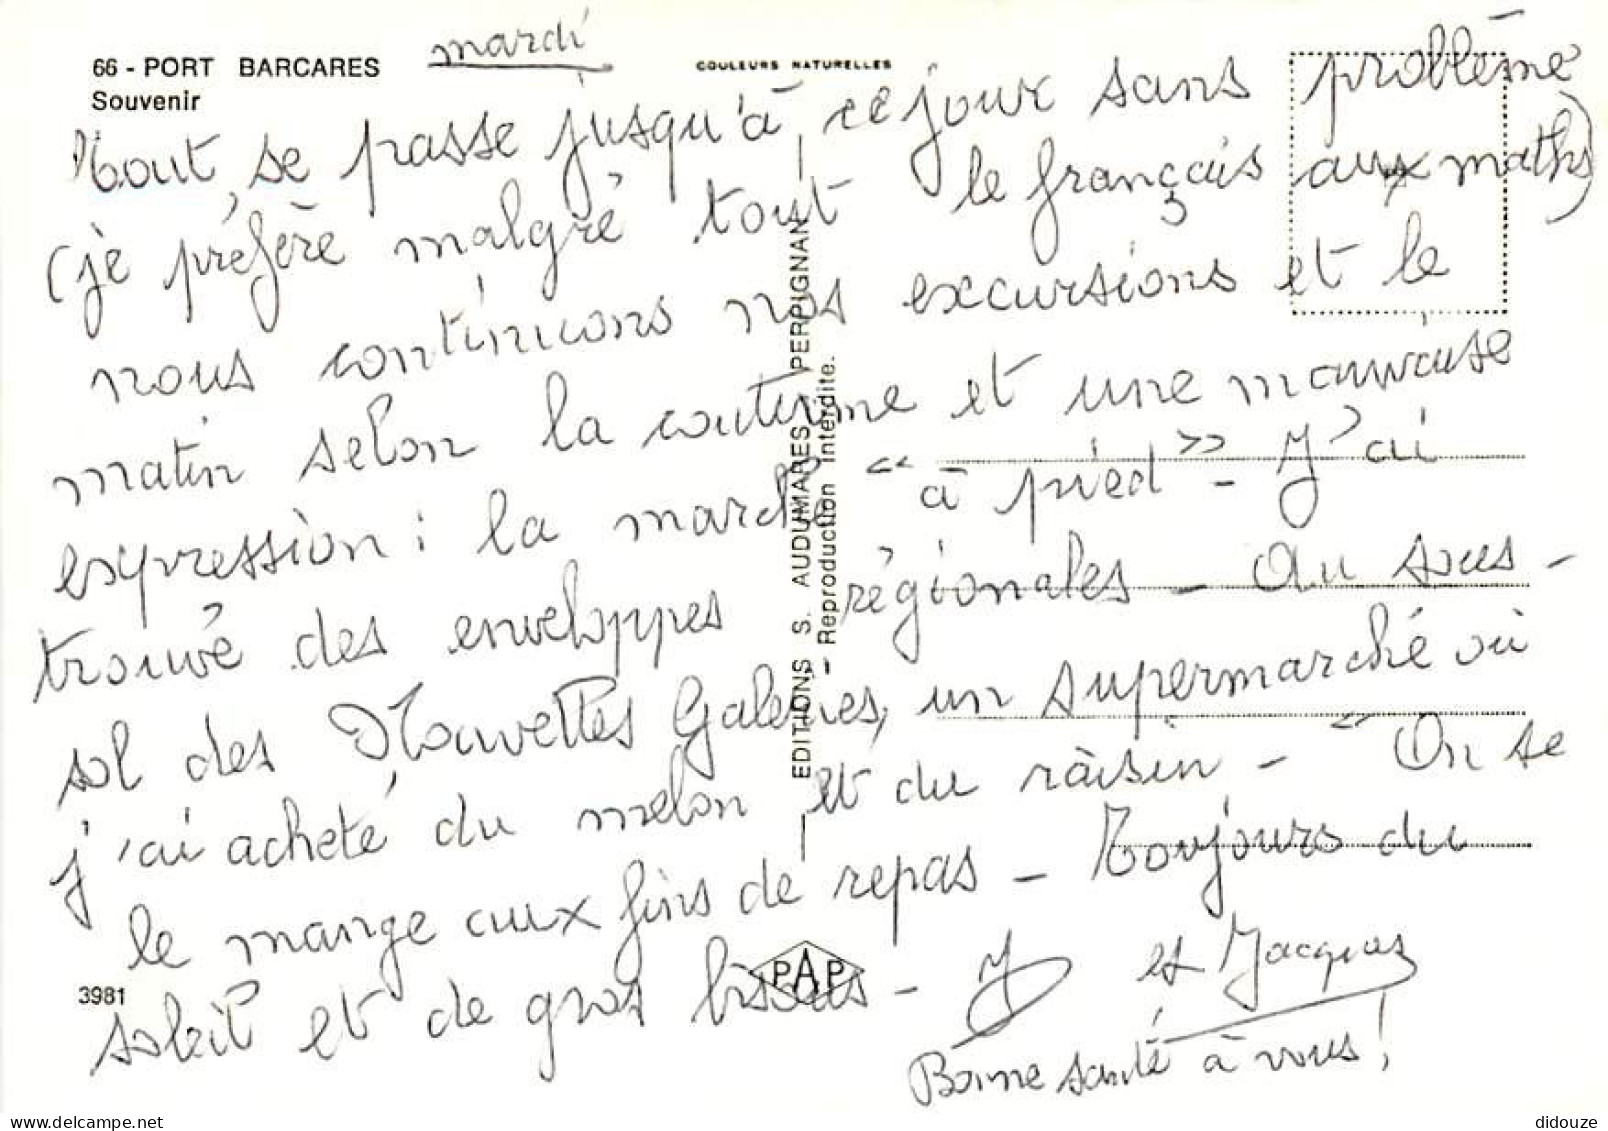 66 - PORT BARCARES
Souvenir
mardi
COULEURS NATURELLES
Tout se passe jusqu'à ce jour sans problème
(je préfère malgré tout le français aux maths)
nous continuons nos excursions et le
matin selon la coutume et une mauvaise
expression : la marche "à pied" - J'ai
trouvé des enveloppes régionales - Au sous-
sol des Nouvelles Galeries, un supermarché où
j'ai acheté du melon et du raisin - On se
le mange aux fins de repas - Toujours du
soleil et de gros bisous - J et Jacques
Bonne santé à vous !
EDITIONS S. AUDUMARES PERPIGNAN
- Reproduction interdite.
PAP
3981
didouze
delcampe.net